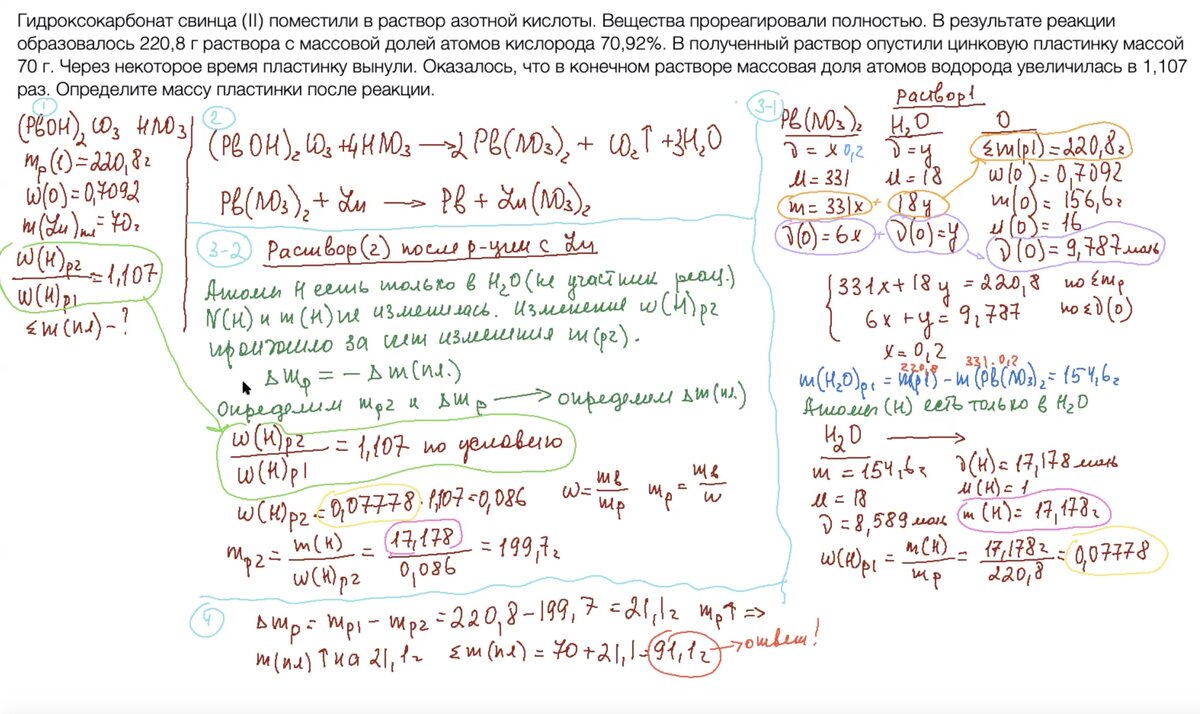 Гидроксокарбонат свинца (II) поместили в раствор азотной кислоты. Вещества прореагировали полностью. В результате реакции
образовалось 220,8 г раствора с массовой долей атомов кислорода 70,92%. В полученный раствор опустили цинковую пластинку массой
70 г. Через некоторое время пластинку вынули. Оказалось, что в конечном растворе массовая доля атомов водорода увеличилась в 1,107
раз. Определите массу пластинки после реакции.
1
(PbOH)₂CO₃ HNO₃
mр(1)=220,8г
w(O)=0,7092
m(Zn)пл=70г
w(H)р2
w(H)р1
=1,107
Σm(пл)-?
2
(PbOH)₂CO₃+4HNO₃→2Pb(NO₃)₂+CO₂↑+3H₂O
Pb(NO₃)₂+Zn→Pb+Zn(NO₃)₂
3-2
Раствор(2) после р-ции с Zn
Атомы H есть только в H₂O(не участник реак.)
N(H) и m(H) не изменилась. Изменение w(H)р2
произошло за счет изменения m(р2).
Δmр=-Δm(пл.)
определим mр2 и Δmр→определим Δm(пл)
w(H)р2
w(H)р1
=1,107 по условию
w(H)р2=0,07778·1,107=0,086
w=mв/mр mр=mв/w
mр2=m(H)/w(H)р2=17,178/0,086=199,7г
4
Δmр=mр1-mр2=220,8-199,7=21,1г mр↑⇒
m(пл)↑на 21,1г Σm(пл)=70+21,1=91,1г→ответ!
3-1
Раствор1
Pb(NO₃)₂ H₂O O
ν=x 0,2 ν=y Σm(р1)=220,8г
M=331 M=18 w(O)=0,7092
m=331x+18y m(O)=156,6г
M(O)=16
ν(O)=6x+ν(O)=y ν(O)=9,787моль
331x+18y=220,8 по Σmр
6x+y=9,787 по Σν(O)
x=0,2
220,8 331·0,2
m(H₂O)р1=m(р1)-m(Pb(NO₃)₂=154,6г
Атомы(H) есть только в H₂O
H₂O→
m=154,6г ν(H)=17,178моль
M=18 M(H)=1
ν=8,589моль m(H)=17,178г
w(H)р1=m(H)/mр=17,178г/220,8=0,07778